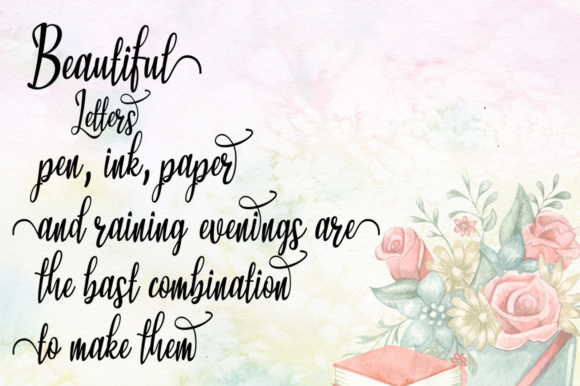 Beautiful
Letters
pen, ink, paper
and raining evenings are
the bast combination
to make them